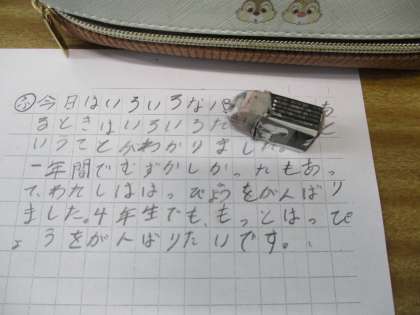 ㋫今日はいろいろない
るときはいろいろた
いうことがわかりました。
一年間でむずかしかったもあっ
て、わたしははっぴょうをがんばり
ました。4年生でも、もっとはっぴ
ょうをがんばりたいです。